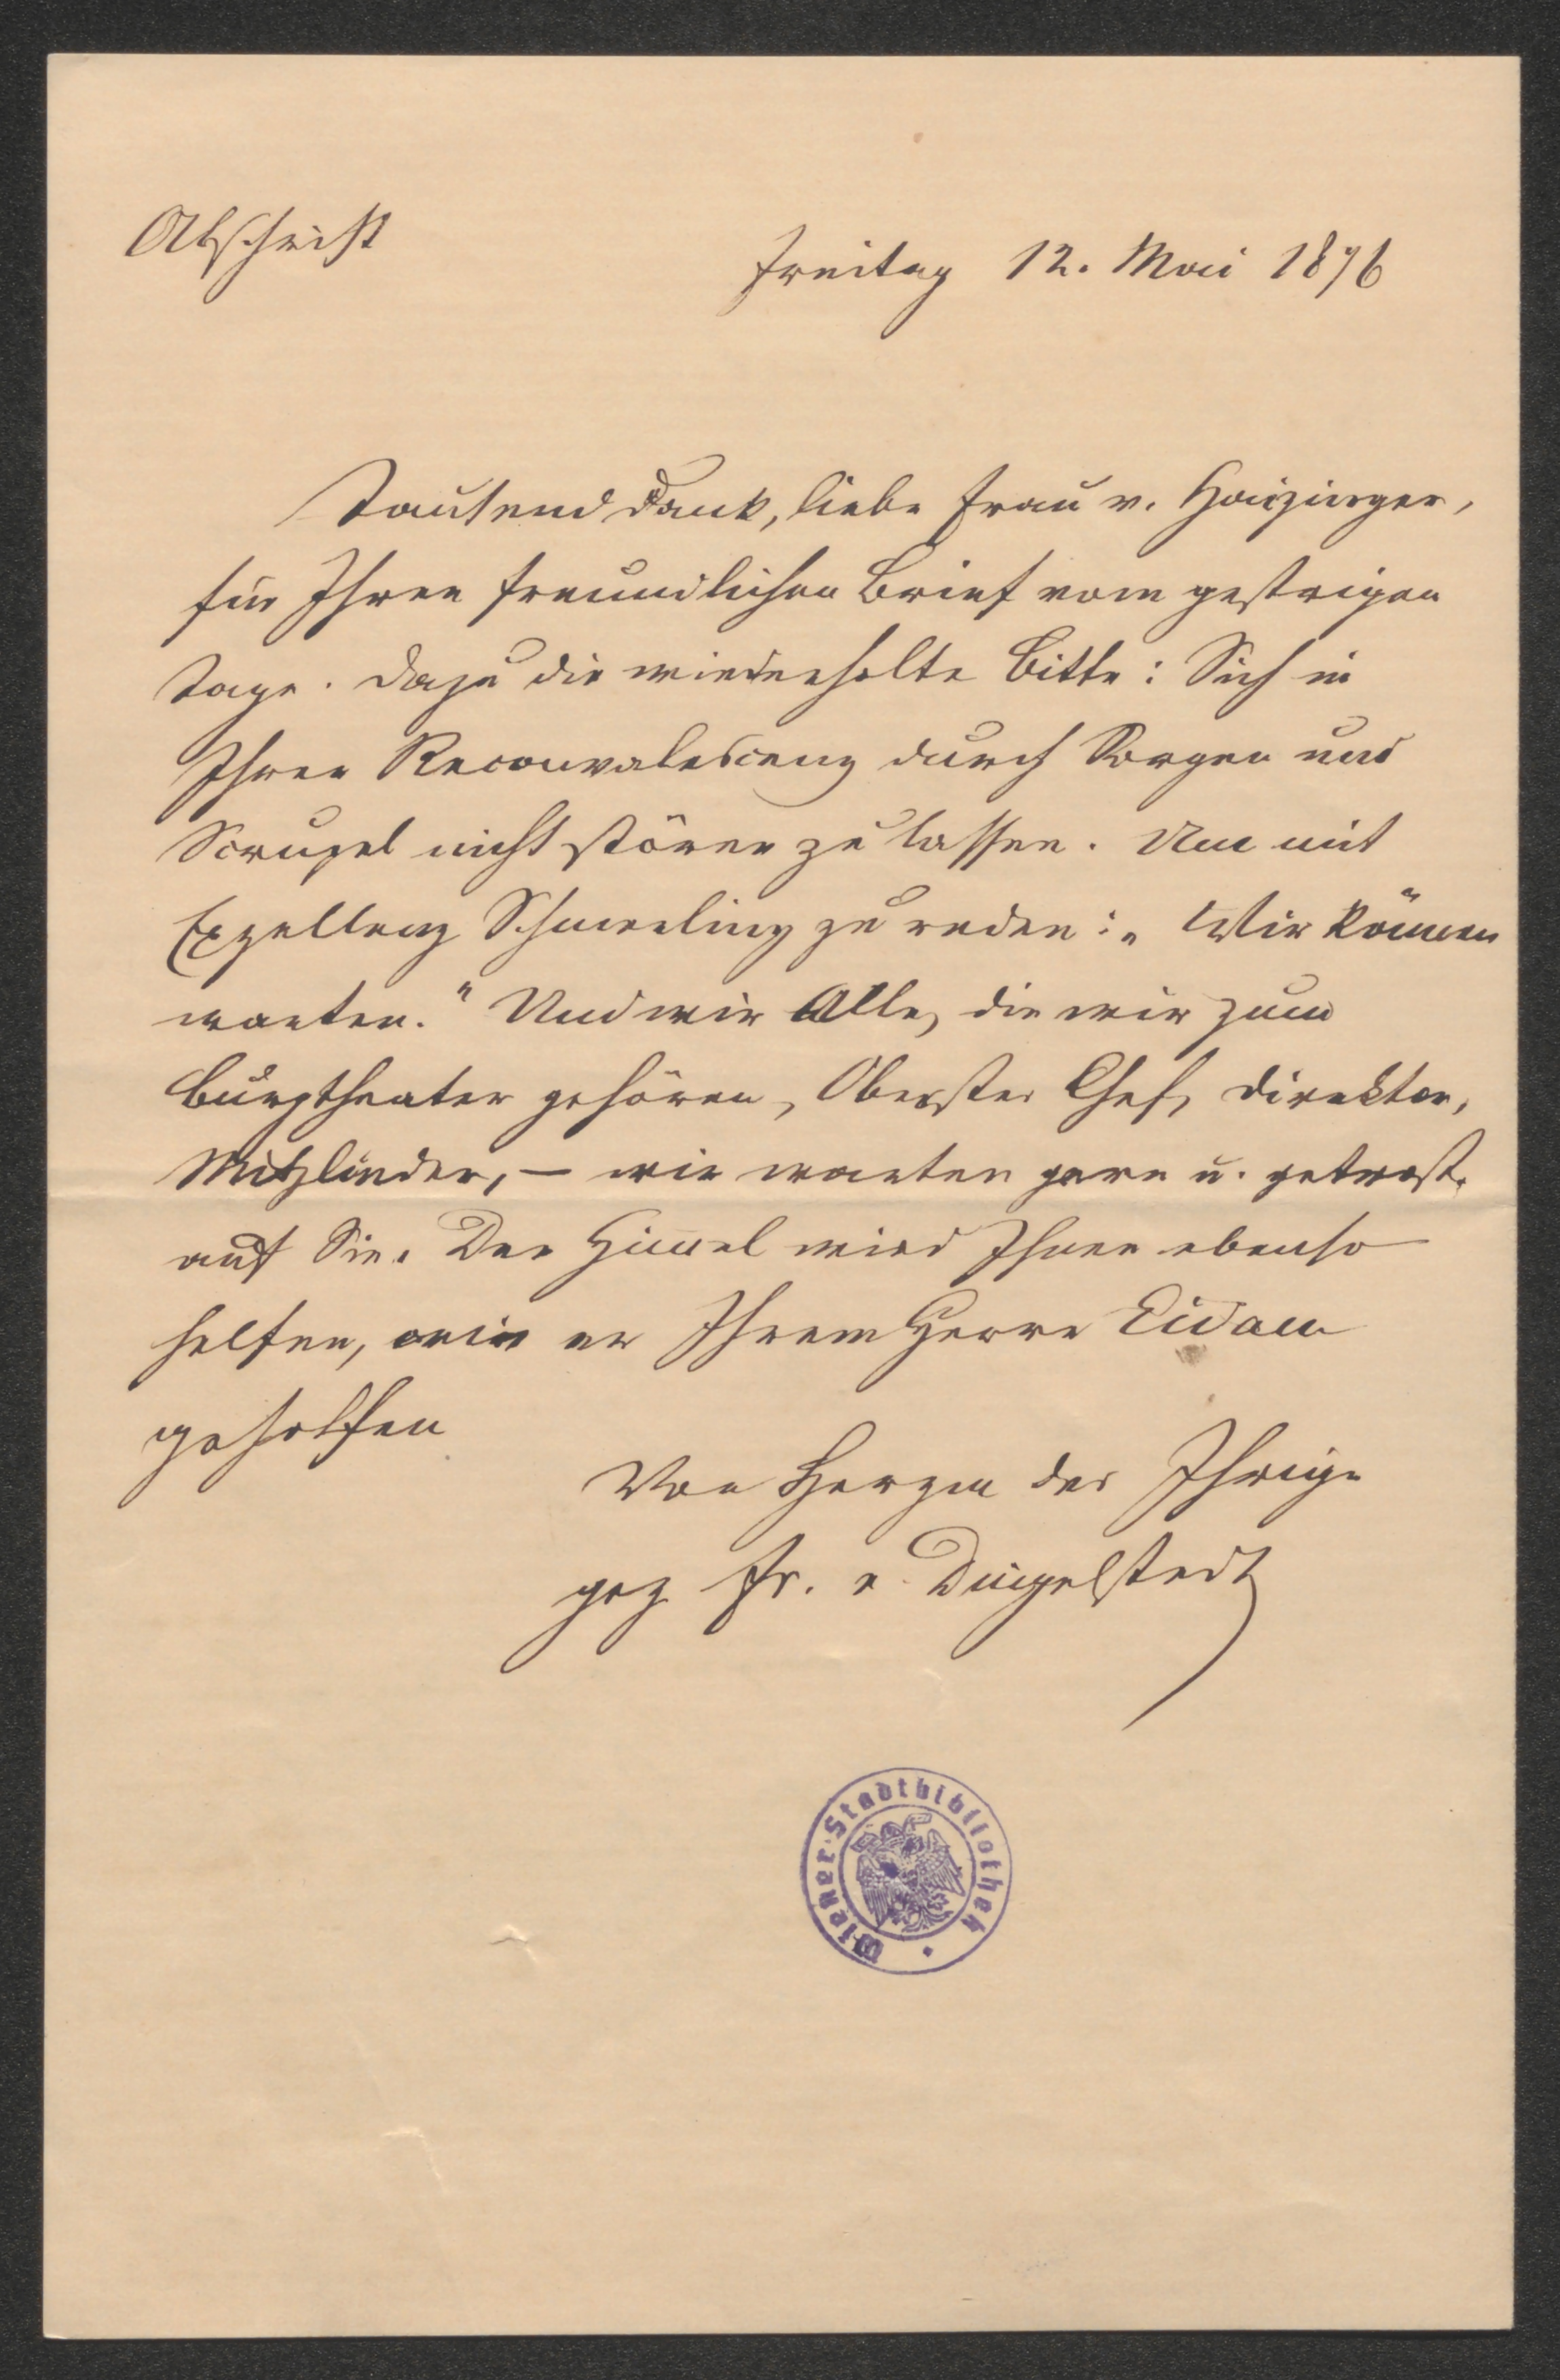 Abschrift
Freitag 12. Mai 1876
Tausend Dank, liebe Frau v. Haizinger,
für Ihren freundlichen Brief vom gestrigen
Tage. Dazu die wiederholte Bitte: Sich in
Ihrer Reconvalescenz durch Sorgen und
Scrupel nicht stören zu lassen. Um mit
Exzellenz Schmerling zu reden: „Wir können
warten.“ Und wir Alle, die wir zum
Burgtheater gehören, Oberster Chef, Direktor,
Mitglieder, – wir warten gern u. getrost.
auf Sie. Der Himmel wird Ihnen ebenso
helfen, wie er Ihrem Herrn Eidam
geholfen
Von Herzen der Ihrige
gez Fr. v. Dingelstedt
Wiener Stadtbibliothek